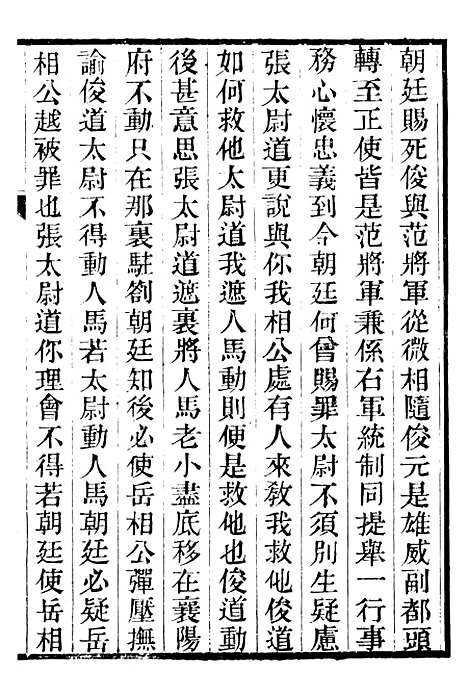 朝廷賜死俊與范將軍從微相隨俊元是雄威副都頭
轉至正使皆是范將軍兼係右軍統制同提舉一行事
務心懷忠義到今朝廷何曾賜罪太尉不須別生疑慮
張太尉道更說與你我相公處有人來敎我救他俊道
如何救他太尉道我遮人馬動則便是救他也俊道動
後甚意思張太尉道遮裏將人馬老小盡底移在襄陽
府不動只在那裏駐劄朝廷知後必使岳相公彈壓撫
諭俊道太尉不得動人馬若太尉動人馬朝廷必疑岳
相公越被罪也張太尉道你理會不得若朝廷使岳相